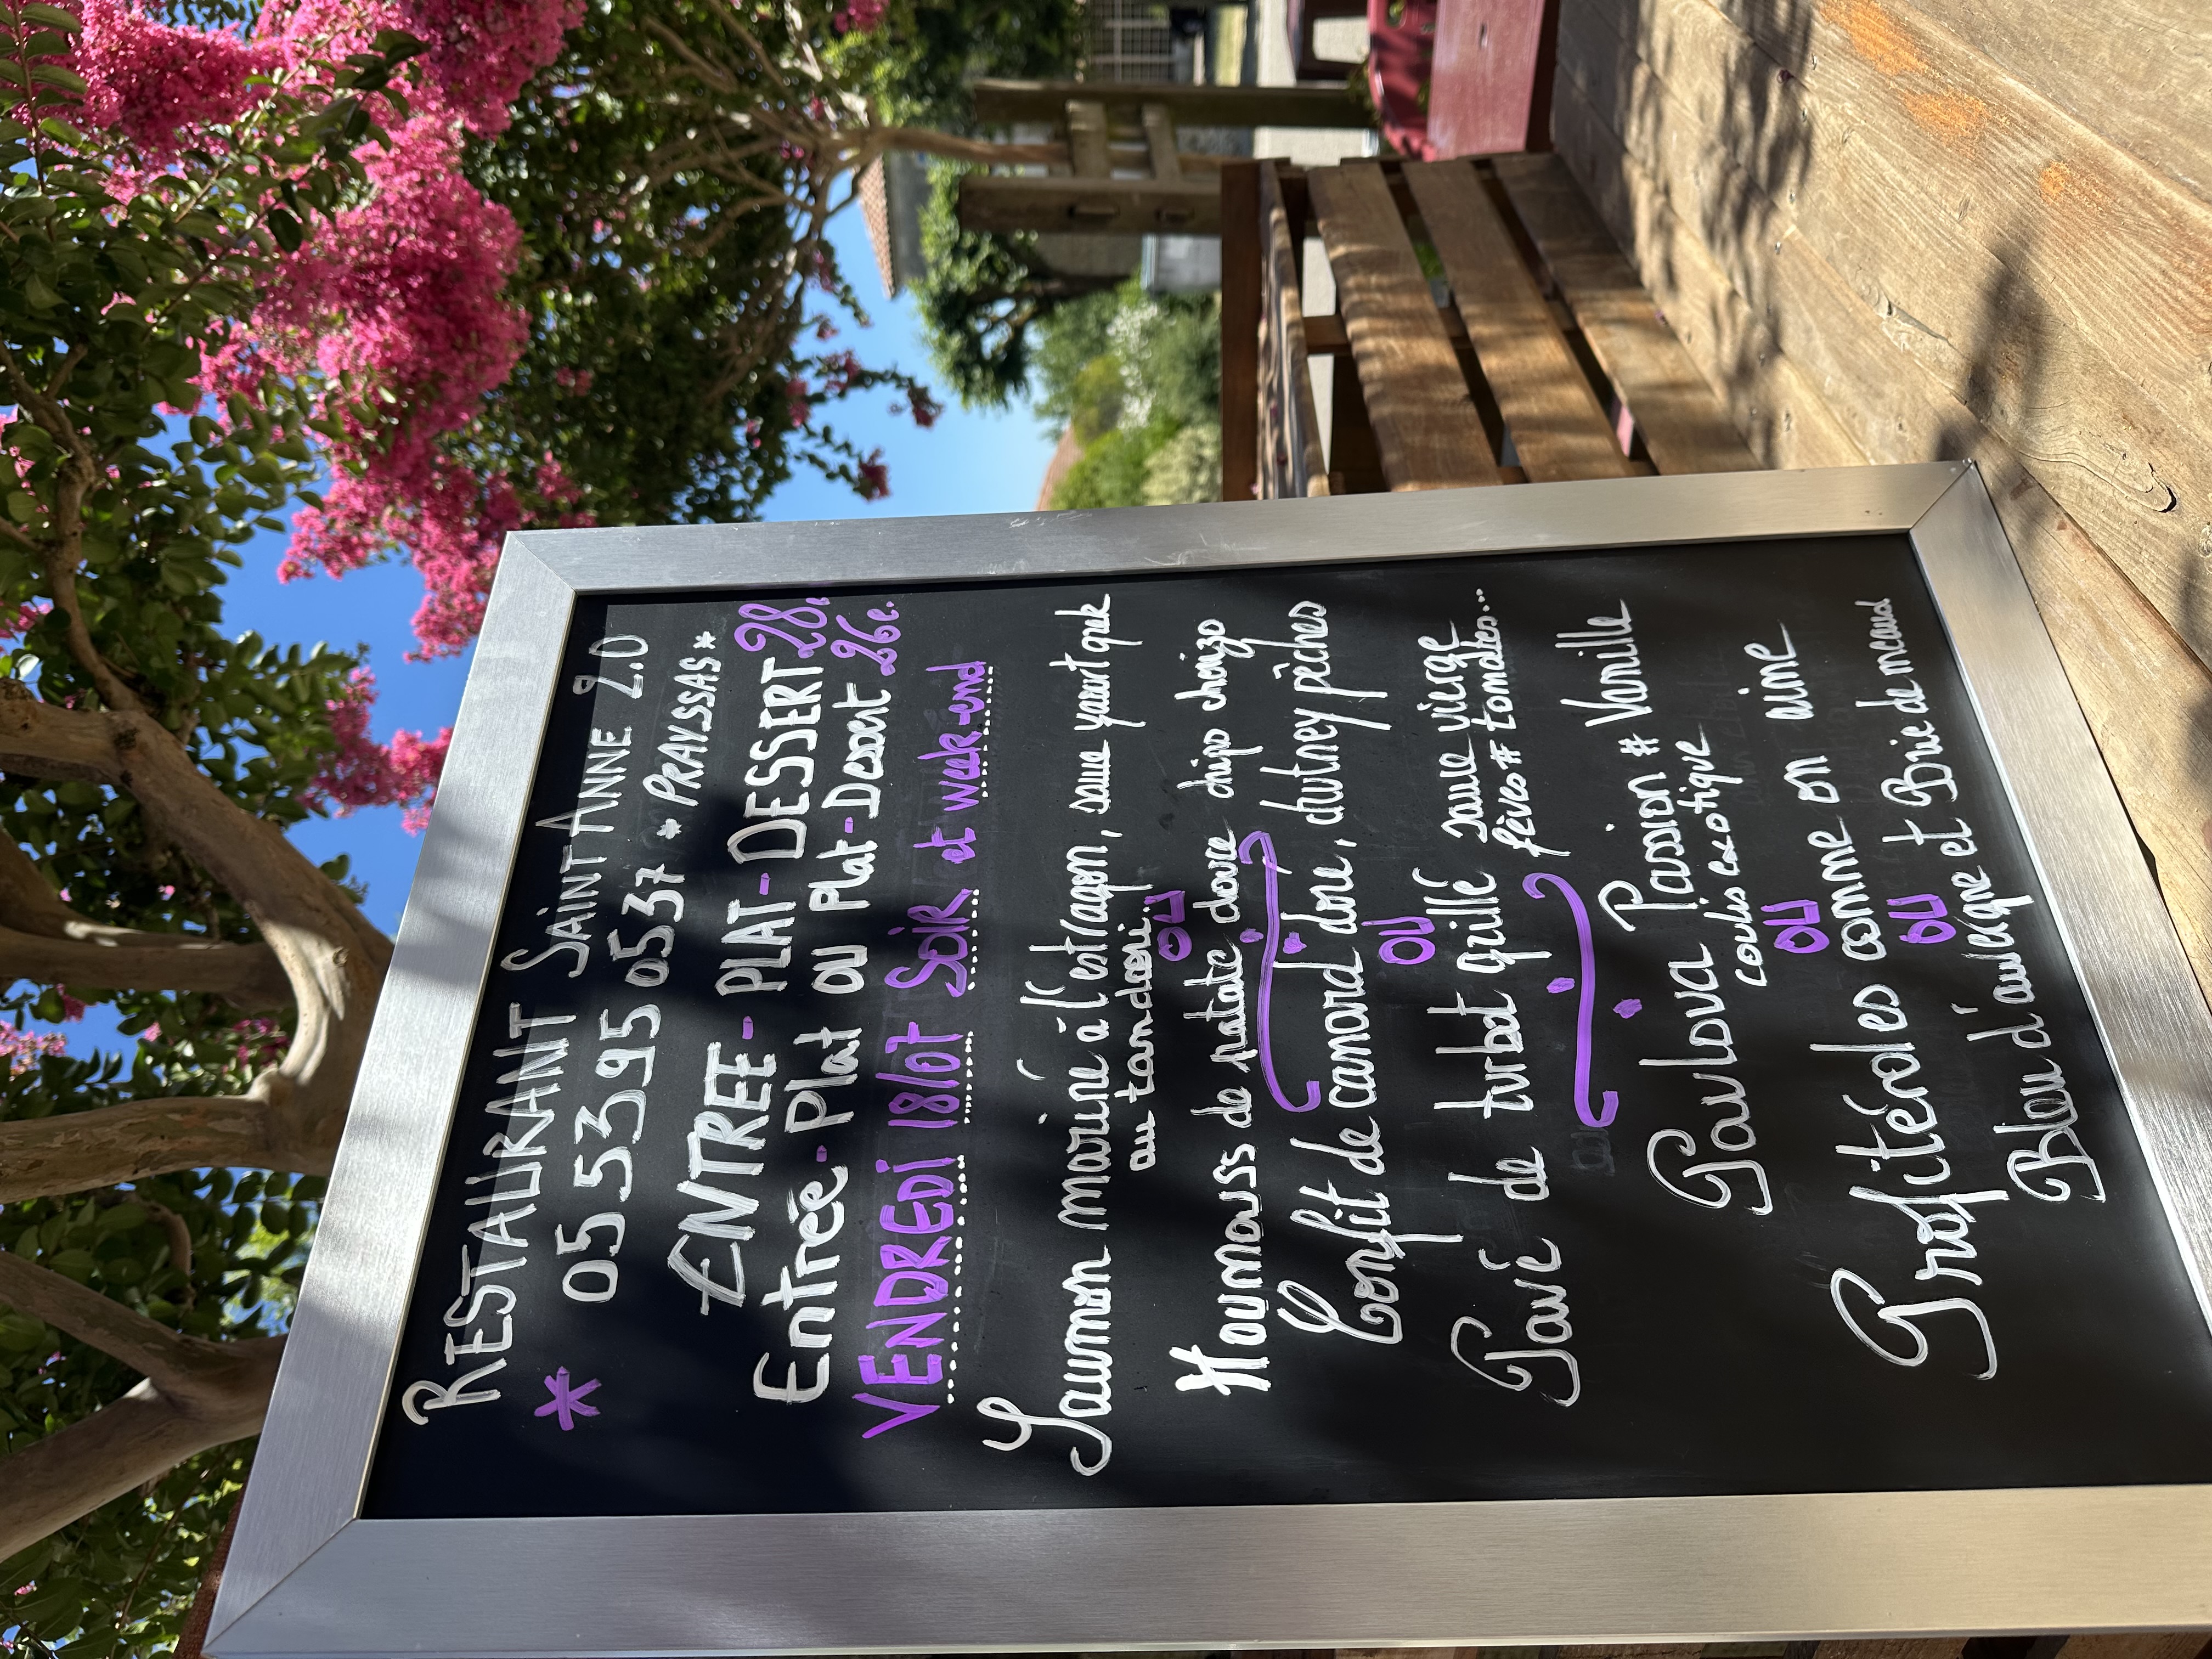 RESTAURANT SAINT ANNE 2.0
* 05 53 95 05 37 * PRAYSSAS *
ENTREE - PLAT - DESSERT 28€
Entrée - Plat ou Plat - Dessert 26€.
VENDREDI 18/07 SOIR et week-end
Saumon mariné à l'estragon, sauce yaourt grek
au tandoori..
OU
Houmouss de patate douce chips chorizo
Confit de canard doré, chutney pêches
OU
Pavé de turbot grillé sauce vierge
fèves # tomates...
Pavlova Passion # Vanille
coulis exotique
OU
Profitéroles comme on aime
OU
Bleu d'auvergne et Brie de meaux